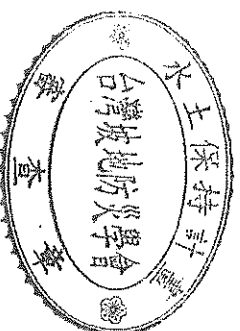 水土保持計畫
台灣坡地防災學會
審查章